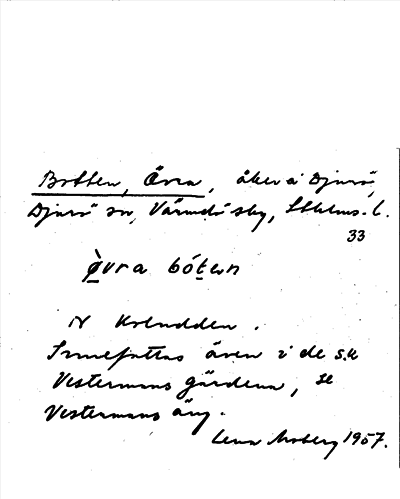 Botten, Övra, åker å Djurö,
Djurö sn, Värmdö sky, Sthlms. l.
33
ø̀vra bót̲en
N Koludden.
Innefattas även i de s.k
Vestermans gärdena, se
Vestermans äng.
Lena Moberg 1957.